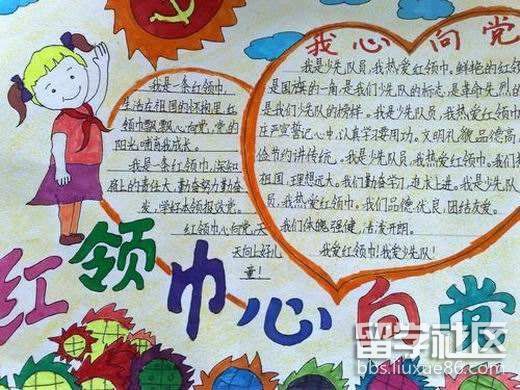 我心向党
我是一条红领巾,
生活在祖国的怀抱里,红
领巾飘飘心向党,党的
阳光哺育我成长。
我是一条红领巾,深知
肩上的责任大,勤奋努力勤奋
发,学好本领报效党。
红领巾心向党,天
天向上好儿
童!
我是少先队员,我热爱红领巾。鲜艳的红领
是国旗的一角,是我们少先队的标志,是革命先烈的
是我们少先队的榜样。我是少先队员,我热爱红领巾
庄严宣誓记心中,认真学习要用功。文明礼貌品德高
俭节约讲传统。我是少先队员,我热爱红领巾。我们
祖国,理想远大。我们勤奋学习,追求上进。我是少先队
员,我热爱红领巾。我们品德优良,团结友爱。
我们体魄强健,活泼开朗。
我爱红领巾!我爱少先队!
红领巾心向党
留学社区
bbs.liuxue86.com